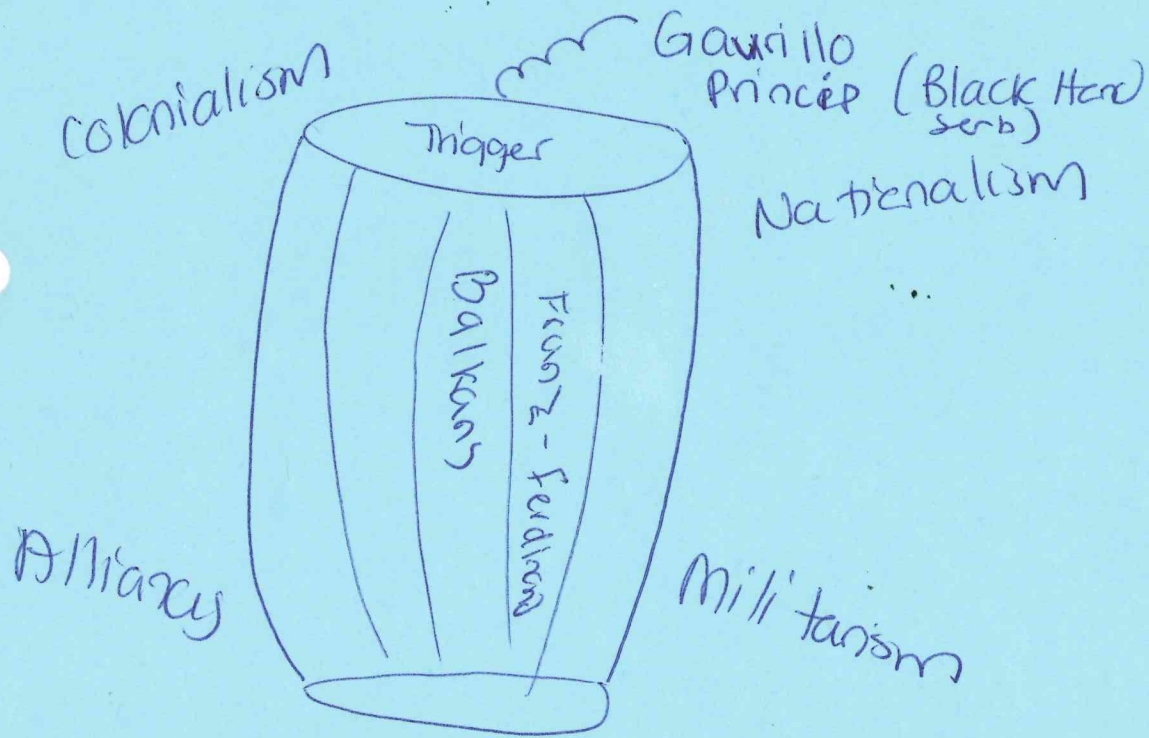 Colonialism
Gavrillo
Princip (Black Hand
Serb)
Trigger
Nationalism
Balkans
Franz - Ferdinand
Alliances
Militarism